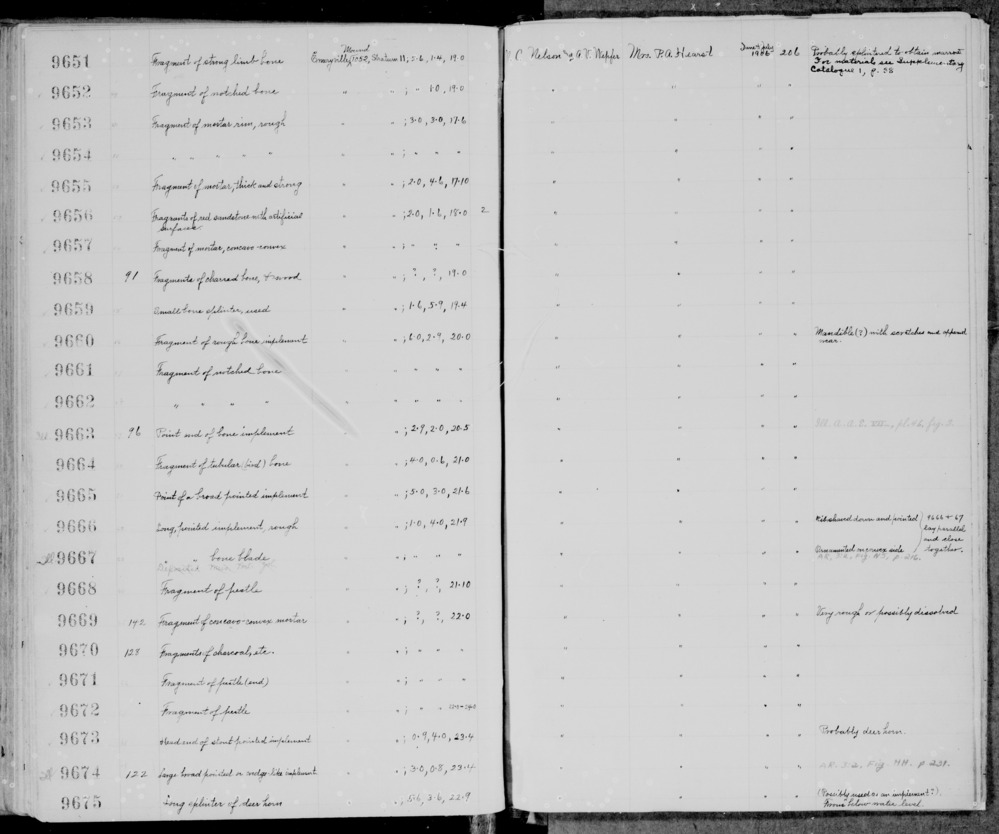 9651 Fragment of strong limb bone Emeryville Mound 7752, Stratum 11; 2.6, 1.4, 19.0 C Nelson A. Nepper Mrs. P.A. Hearst 1906 206 Probably splintered to obtain marrow
For material see Supplementary
Catalogue 1, p. 58
9652 " Fragment of notched bone " " ; " 1.0, 19.0 " " " "
9653 " Fragment of mortar rim, rough " " ; 3.0, 3.0, 17.6 " " " "
9654 " " " " " " " " ; " " " " " " "
9655 " Fragment of mortar, thick and strong " " ; 2.0, 4.6, 17.10 " " " "
9656 " Fragments of red sandstone with artificial " " ; 2.0, 1.6, 18.0 2 " " " "
surface.
9657 " Fragment of mortar, concavo-convex " " ; " " " " " " "
9658 91 Fragments of charred bone, & wood " " ; ?, ?, 19.0 " " " "
9659 Small bone splinter, used " " ; 1.6, 5.9, 19.4 " " " "
9660 Fragment of rough bone implement " " ; 6.0, 2.9, 20.0 " " " " Mandible(?) with scratches and
wear.
9661 Fragment of notched bone " " " " " " " " "
9662 " " " " " " " " " " " " "
9663 96 Point end of bone implement " " ; 2.9, 2.0, 20.5 " " " "
9664 Fragment of tubular (bird) bone " " ; 4.0, 0.6, 21.0 " " " "
9665 Point of a broad pointed implement " " ; 5.0, 3.0, 21.6 " " " "
9666 Long, pointed implement, rough " " ; 1.0, 4.0, 21.9 " " " " Rib shaved down and pointed 9666 + 67
lay parallel
and close
together.
9667 " bone blade " " ; " " " " " " " Ornamented on convex side
9668 Fragment of pestle " " ; ?, ?, 21.10 " " " "
9669 142 Fragment of concavo-convex mortar " " ; ?, ?, 22.0 " " " " Very rough or possibly dissolved
9670 123 Fragments of charcoal, etc. " " ; " " " " " " "
9671 Fragment of pestle (end) " " ; " " " " " " "
9672 Fragment of pestle " " ; " " " " " "
9673 Head end of stout pointed implement " " ; 0.9, 4.0, 23.4 " " " " Probably deer horn.
9674 122 Large broad pointed or wedge-like implement " " ; 3.0, 0.8, 23.4 " " " " AR. 3.2, Fig. HH. p. 231.
9675 Long splinter of deer horn " " , 5.6, 3.6, 22.9 " " " " (Possibly used as an implement?).
From below water level